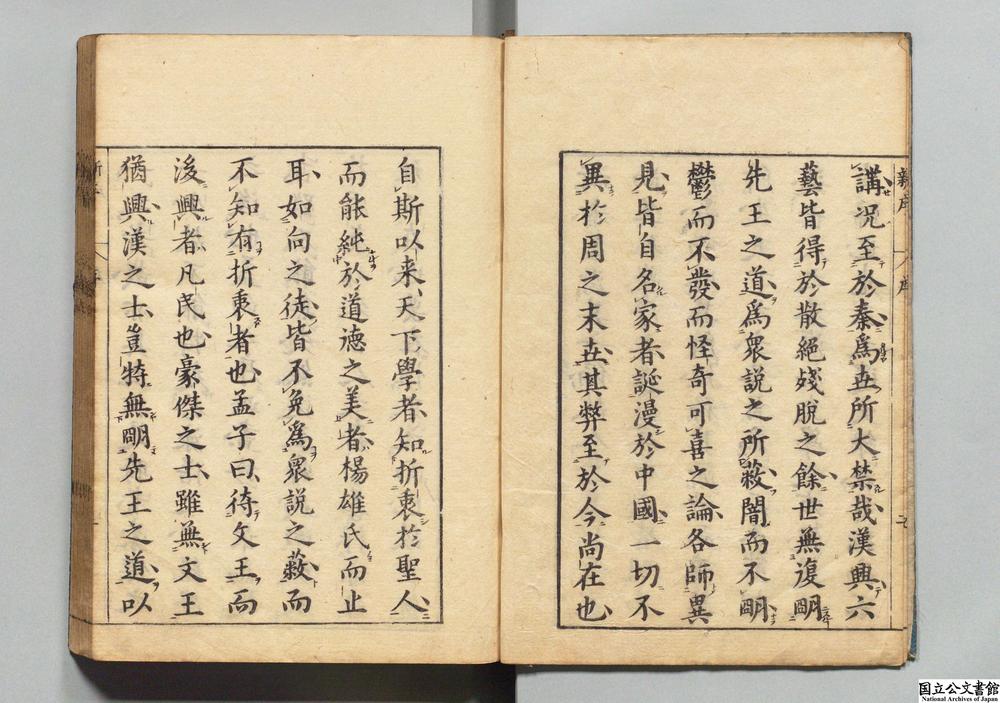 講況至於秦為世所大禁哉漢興六
藝皆得於散絕殘脫之餘世無復明
先王之道為眾說之所蔽闇而不明
鬱而不發而怪奇可喜之論各師異
見皆自名家者誕漫於中國一切不
異於周之末世其弊至於今尚在也
自斯以来天下學者知折衷於聖人
而能純於道德之美者楊雄氏而止
耳如向之徒皆不免為眾說之蔽而
不知有折衷者也孟子曰待文王而
後興者凡民也豪傑之士雖無文王
猶興漢之士豈特無明先王之道以
国立公文書館
National Archives of Japan